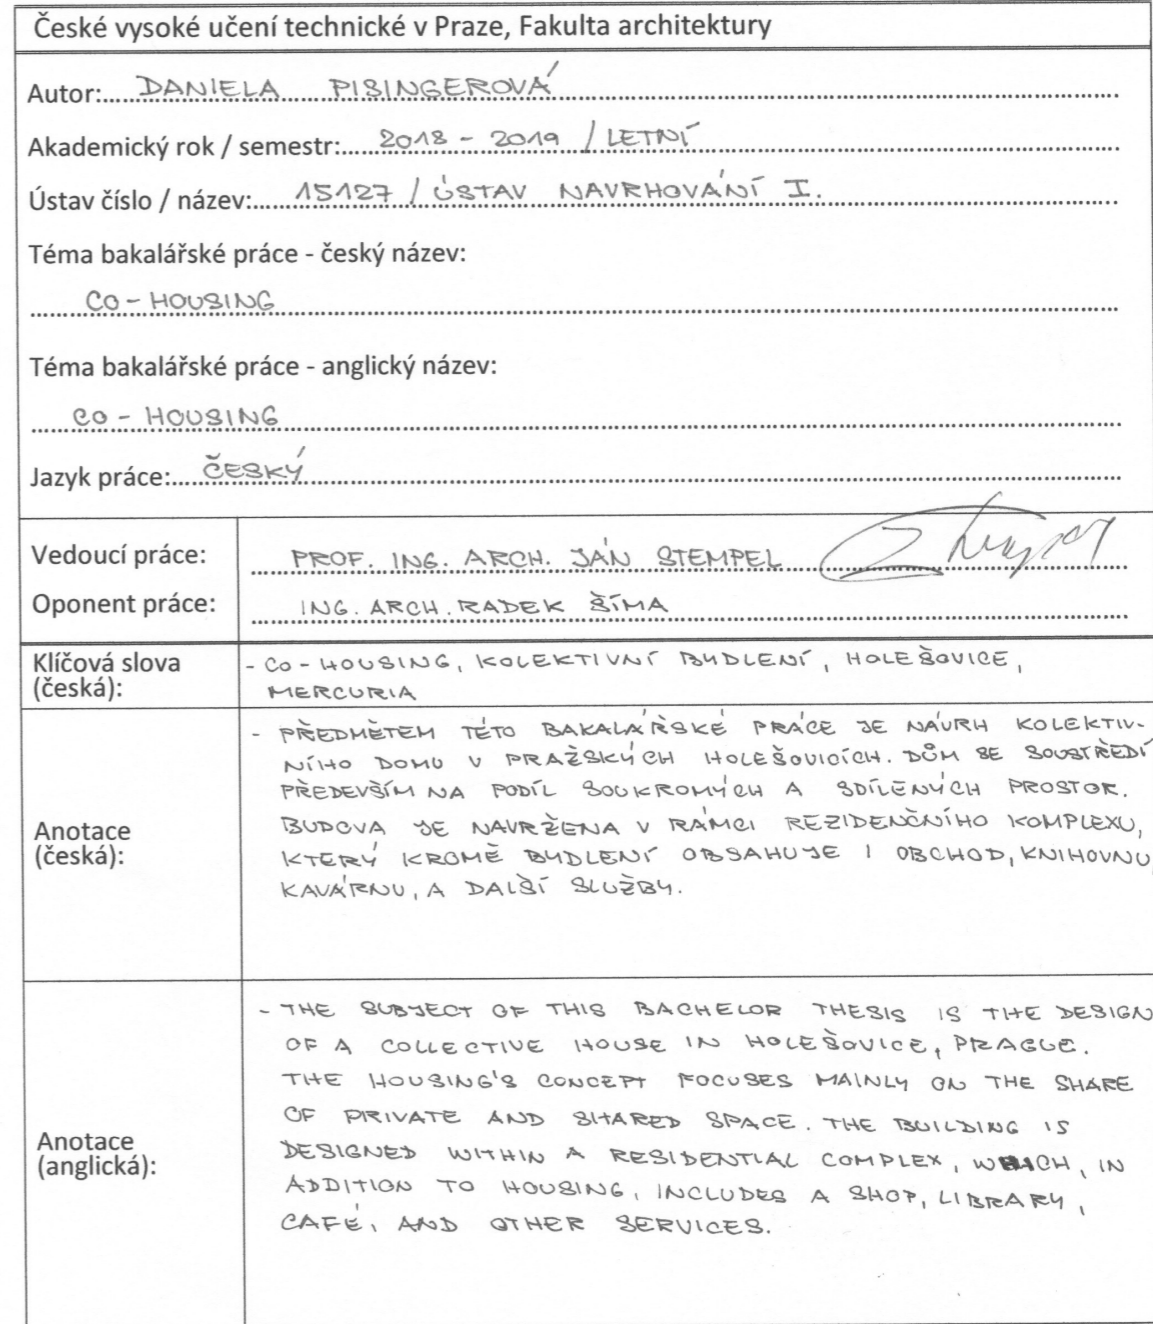 České vysoké učení technické v Praze, Fakulta architektury
Autor: DANIELA PISINGEROVÁ
Akademický rok / semestr: 2018 - 2019 / LETNÍ
Ústav číslo / název: 15127 / ÚSTAV NAVRHOVÁNÍ I.
Téma bakalářské práce - český název:
CO - HOUSING
Téma bakalářské práce - anglický název:
CO - HOUSING
Jazyk práce: ČESKÝ
Vedoucí práce: PROF. ING. ARCH. JÁN STEMPEL
Oponent práce: ING. ARCH. RADEK ŠÍMA
Klíčová slova
(česká):
- CO - HOUSING, KOLEKTIVNÍ BYDLENÍ, HOLEŠOVICE,
MERCURIA
Anotace
(česká):
- PŘEDMĚTEM TÉTO BAKALÁŘSKÉ PRÁCE JE NÁVRH KOLEKTIV-
NÍHO DOMU V PRAŽSKÝCH HOLEŠOVICÍCH. DŮM SE SOUSTŘEDÍ
PŘEDEVŠÍM NA PODÍL SOUKROMÝCH A SDÍLENÝCH PROSTOR.
BUDOVA JE NAVRŽENA V RÁMCI REZIDENČNÍHO KOMPLEXU,
KTERÝ KROMĚ BYDLENÍ OBSAHUJE I OBCHOD, KNIHOVNU,
KAVÁRNU, A DALŠÍ SLUŽBY.
Anotace
(anglická):
- THE SUBJECT OF THIS BACHELOR THESIS IS THE DESIGN
OF A COLLECTIVE HOUSE IN HOLEŠOVICE, PRAGUE.
THE HOUSING'S CONCEPT FOCUSES MAINLY ON THE SHARE
OF PRIVATE AND SHARED SPACE. THE BUILDING IS
DESIGNED WITHIN A RESIDENTIAL COMPLEX, WHICH, IN
ADDITION TO HOUSING, INCLUDES A SHOP, LIBRARY,
CAFÉ, AND OTHER SERVICES.